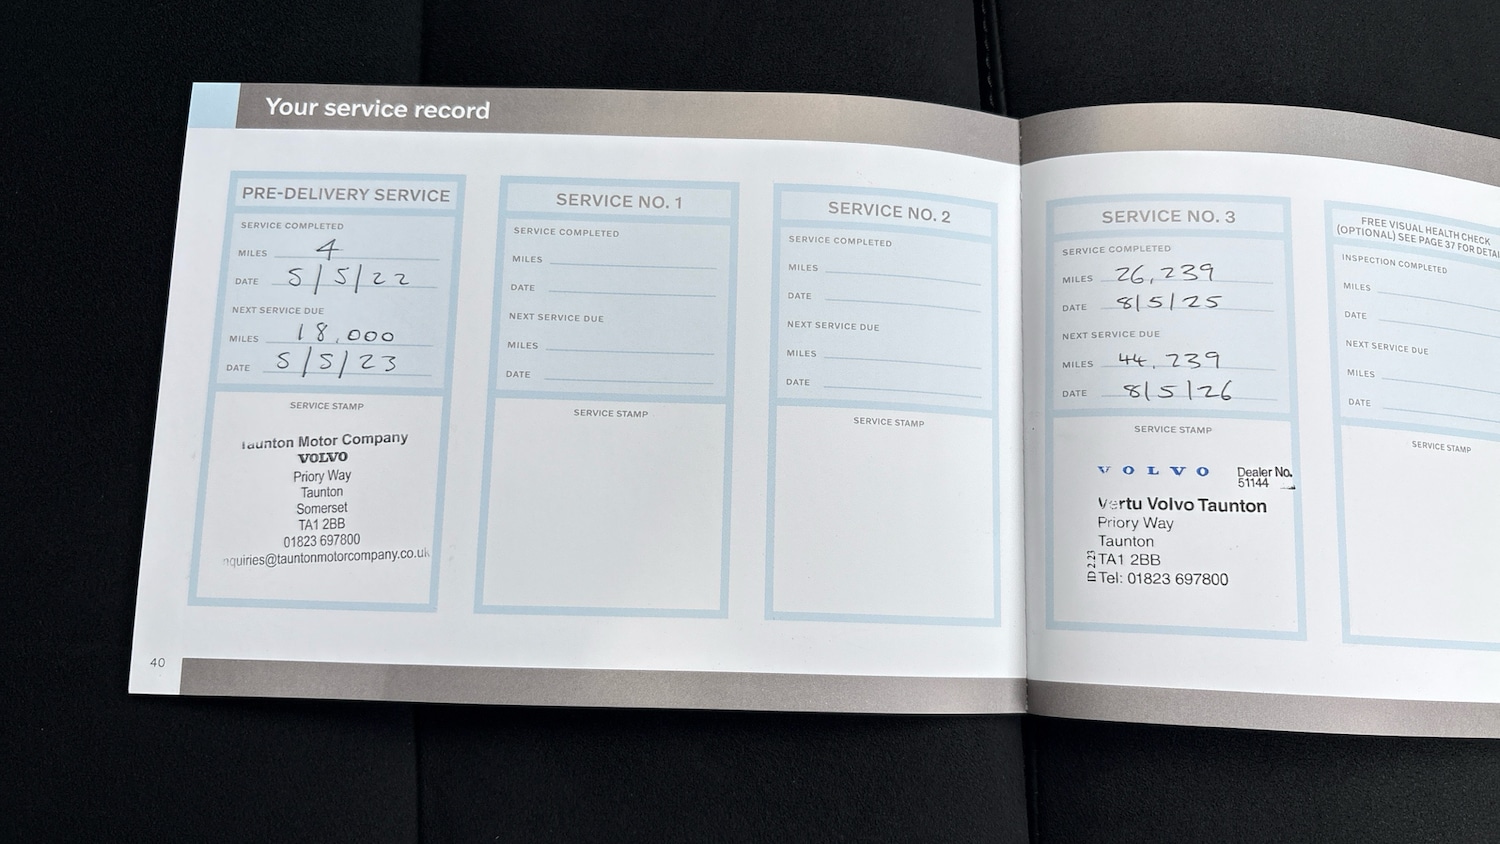 Your service record
PRE-DELIVERY SERVICE
SERVICE COMPLETED
MILES 4
DATE 5/5/22
NEXT SERVICE DUE
MILES 18,000
DATE 5/5/23
SERVICE STAMP
Taunton Motor Company
VOLVO
Priory Way
Taunton
Somerset
TA1 2BB
01823 697800
nquiries@tauntonmotorcompany.co.uk
SERVICE NO. 1
SERVICE COMPLETED
MILES
DATE
NEXT SERVICE DUE
MILES
DATE
SERVICE STAMP
SERVICE NO. 2
SERVICE COMPLETED
MILES
DATE
NEXT SERVICE DUE
MILES
DATE
SERVICE STAMP
SERVICE NO. 3
SERVICE COMPLETED
MILES 26,239
DATE 8/5/25
NEXT SERVICE DUE
MILES 44,239
DATE 8/5/26
SERVICE STAMP
VOLVO Dealer No.
51144
Vertu Volvo Taunton
Priory Way
Taunton
TA1 2BB
Tel: 01823 697800
ID 2.23
FREE VISUAL HEALTH CHECK
(OPTIONAL) SEE PAGE 37 FOR DETAI
INSPECTION COMPLETED
MILES
DATE
NEXT SERVICE DUE
MILES
DATE
SERVICE STAMP
40